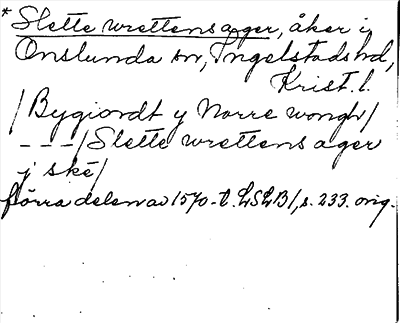 * Slette wrettens ager, åker i
Onslunda sn, Ingelstads hd,
Krist. l.
/Bygiordt y Norre wongh/
---/Slette wrettens ager
j ské/
förra delen av 1570-t. LSLB/, s. 233. orig.